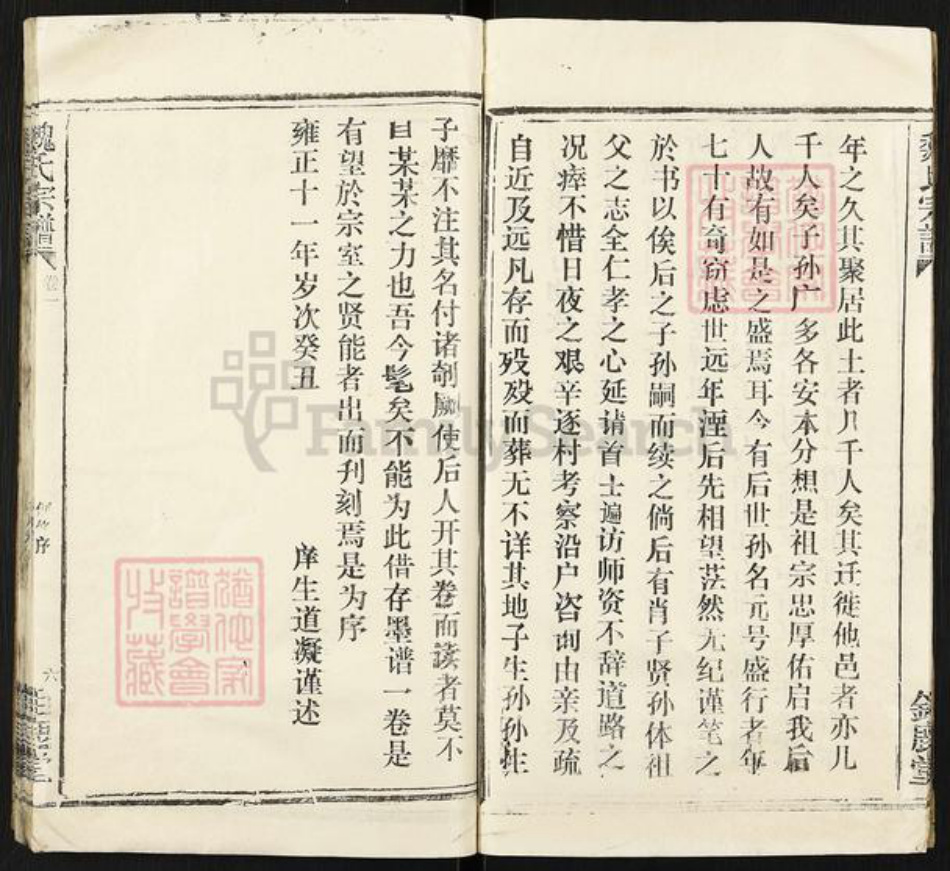 年之久其聚居此土者几千人矣其迁徙他邑者亦几
千人矣子孙广多各安本分想是祖宗忠厚佑启我后
人故有如是之盛焉耳今有后世孙名元号盛行者年
七十有奇窃虑世远年湮后先相望茫然无纪谨笔之
於书以俟后之子孙嗣而续之倘后有肖子贤孙体祖
父之志全仁孝之心延请首士遍访师资不辞道路之
况瘁不惜日夜之艰辛逐村考察沿户咨询由亲及疏
自近及远凡存而殁殁而葬无不详其地子生孙孙生
子靡不注其名付诸剞劂使后人开其卷而读者莫不
曰某某之力也吾今髦矣不能为此借存墨谱一卷是
有望於宗室之贤能者出而刋刻焉是为序
雍正十一年岁次癸丑
庠生道凝谨述
魏氏宗谱
卷一
序
六
FamilySearch